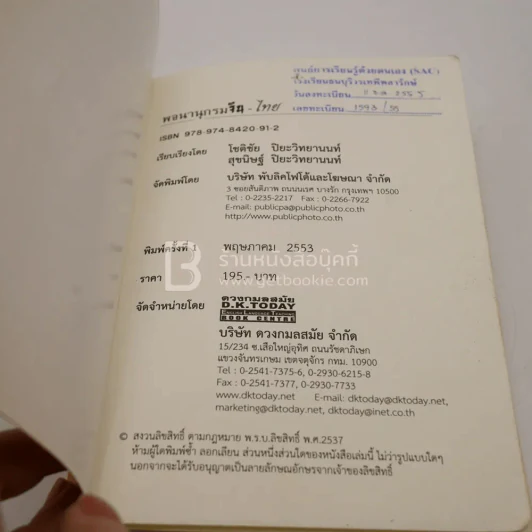 ศูนย์การเรียนรู้ด้วยตนเอง (SAC)
โรงเรียนธนบุรีวรเทพีพลารักษ์
วันลงทะเบียน 2555
เลขทะเบียน 1593/55
พจนานุกรมจีน - ไทย
ISBN 978-974-8420-91-2
เรียบเรียงโดย โชติชัย ปิยะวิทยานนท์
สุขนิษฐ์ ปิยะวิทยานนท์
จัดพิมพ์โดย บริษัท พับลิคโฟโต้และโฆษณา จำกัด
3 ซอยสันติภาพ ถนนนเรศ บางรัก กรุงเทพฯ 10500
Tel : 0-2235-2217 Fax : 0-2266-7922
E-mail: publicpa@publicphoto.co.th
http://www.publicphoto.co.th
พิมพ์ครั้งที่ 1 พฤษภาคม 2553
ร้านหนังสือบุ๊คกี้
www.getbookie.com
ราคา 195.- บาท
จัดจำหน่ายโดย ดวงกมลสมัย
D.K.TODAY
English Language Teaching
BOOK CENTRE
บริษัท ดวงกมลสมัย จำกัด
15/234 ซ.เสือใหญ่อุทิศ ถนนรัชดาภิเษก
แขวงจันทรเกษม เขตจตุจักร กทม. 10900
Tel : 0-2541-7375-6, 0-2930-6215-8
Fax : 0-2541-7377, 0-2930-7733
www.dktoday.net E-mail: dktoday@dktoday.net,
marketing@dktoday.net, dktoday@inet.co.th
© สงวนลิขสิทธิ์ ตามกฎหมาย พ.ร.บ.ลิขสิทธิ์ พ.ศ.2537
ห้ามผู้ใดพิมพ์ซ้ำ ลอกเลียน ส่วนหนึ่งส่วนใดของหนังสือเล่มนี้ ไม่ว่ารูปแบบใดๆ
นอกจากจะได้รับอนุญาตเป็นลายลักษณ์อักษรจากเจ้าของลิขสิทธิ์